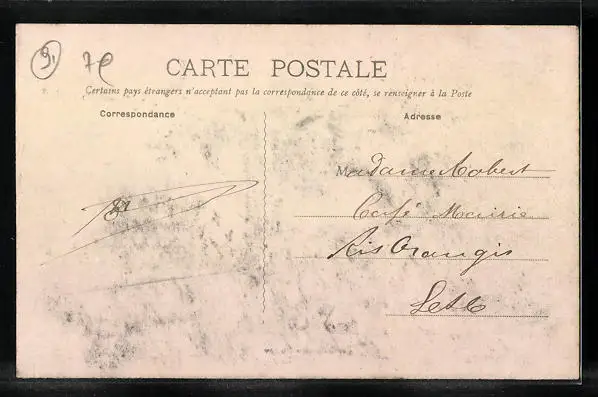 91
7e
CARTE POSTALE
Certains pays étrangers n'acceptant pas la correspondance de ce côté, se renseigner à la Poste
Correspondance
Adresse
Madame Robert
Café Mairie
Ris Orangis